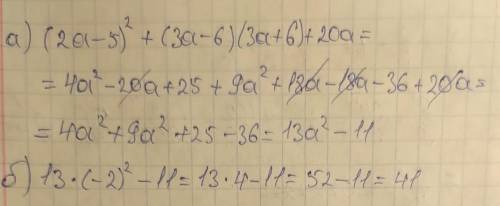 а) (2a-5)² + (3a-6)(3a+6)+20a=
= 4a² - 20a + 25 + 9a² + 18a - 18a - 36 + 20a =
= 4a² + 9a² + 25 - 36 = 13a² - 11
б) 13·(-2)² - 11 = 13·4 - 11 = 52 - 11 = 41